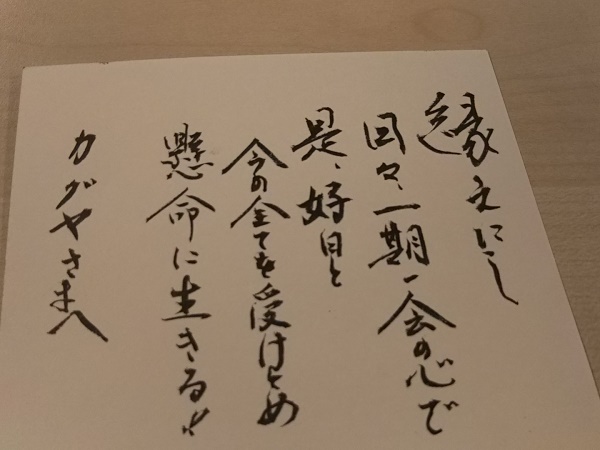 縁えにし
日々、一期一会の心で
是、好日と
今の全てを受けとめ
懸命に生きる!!
カグヤさまへ